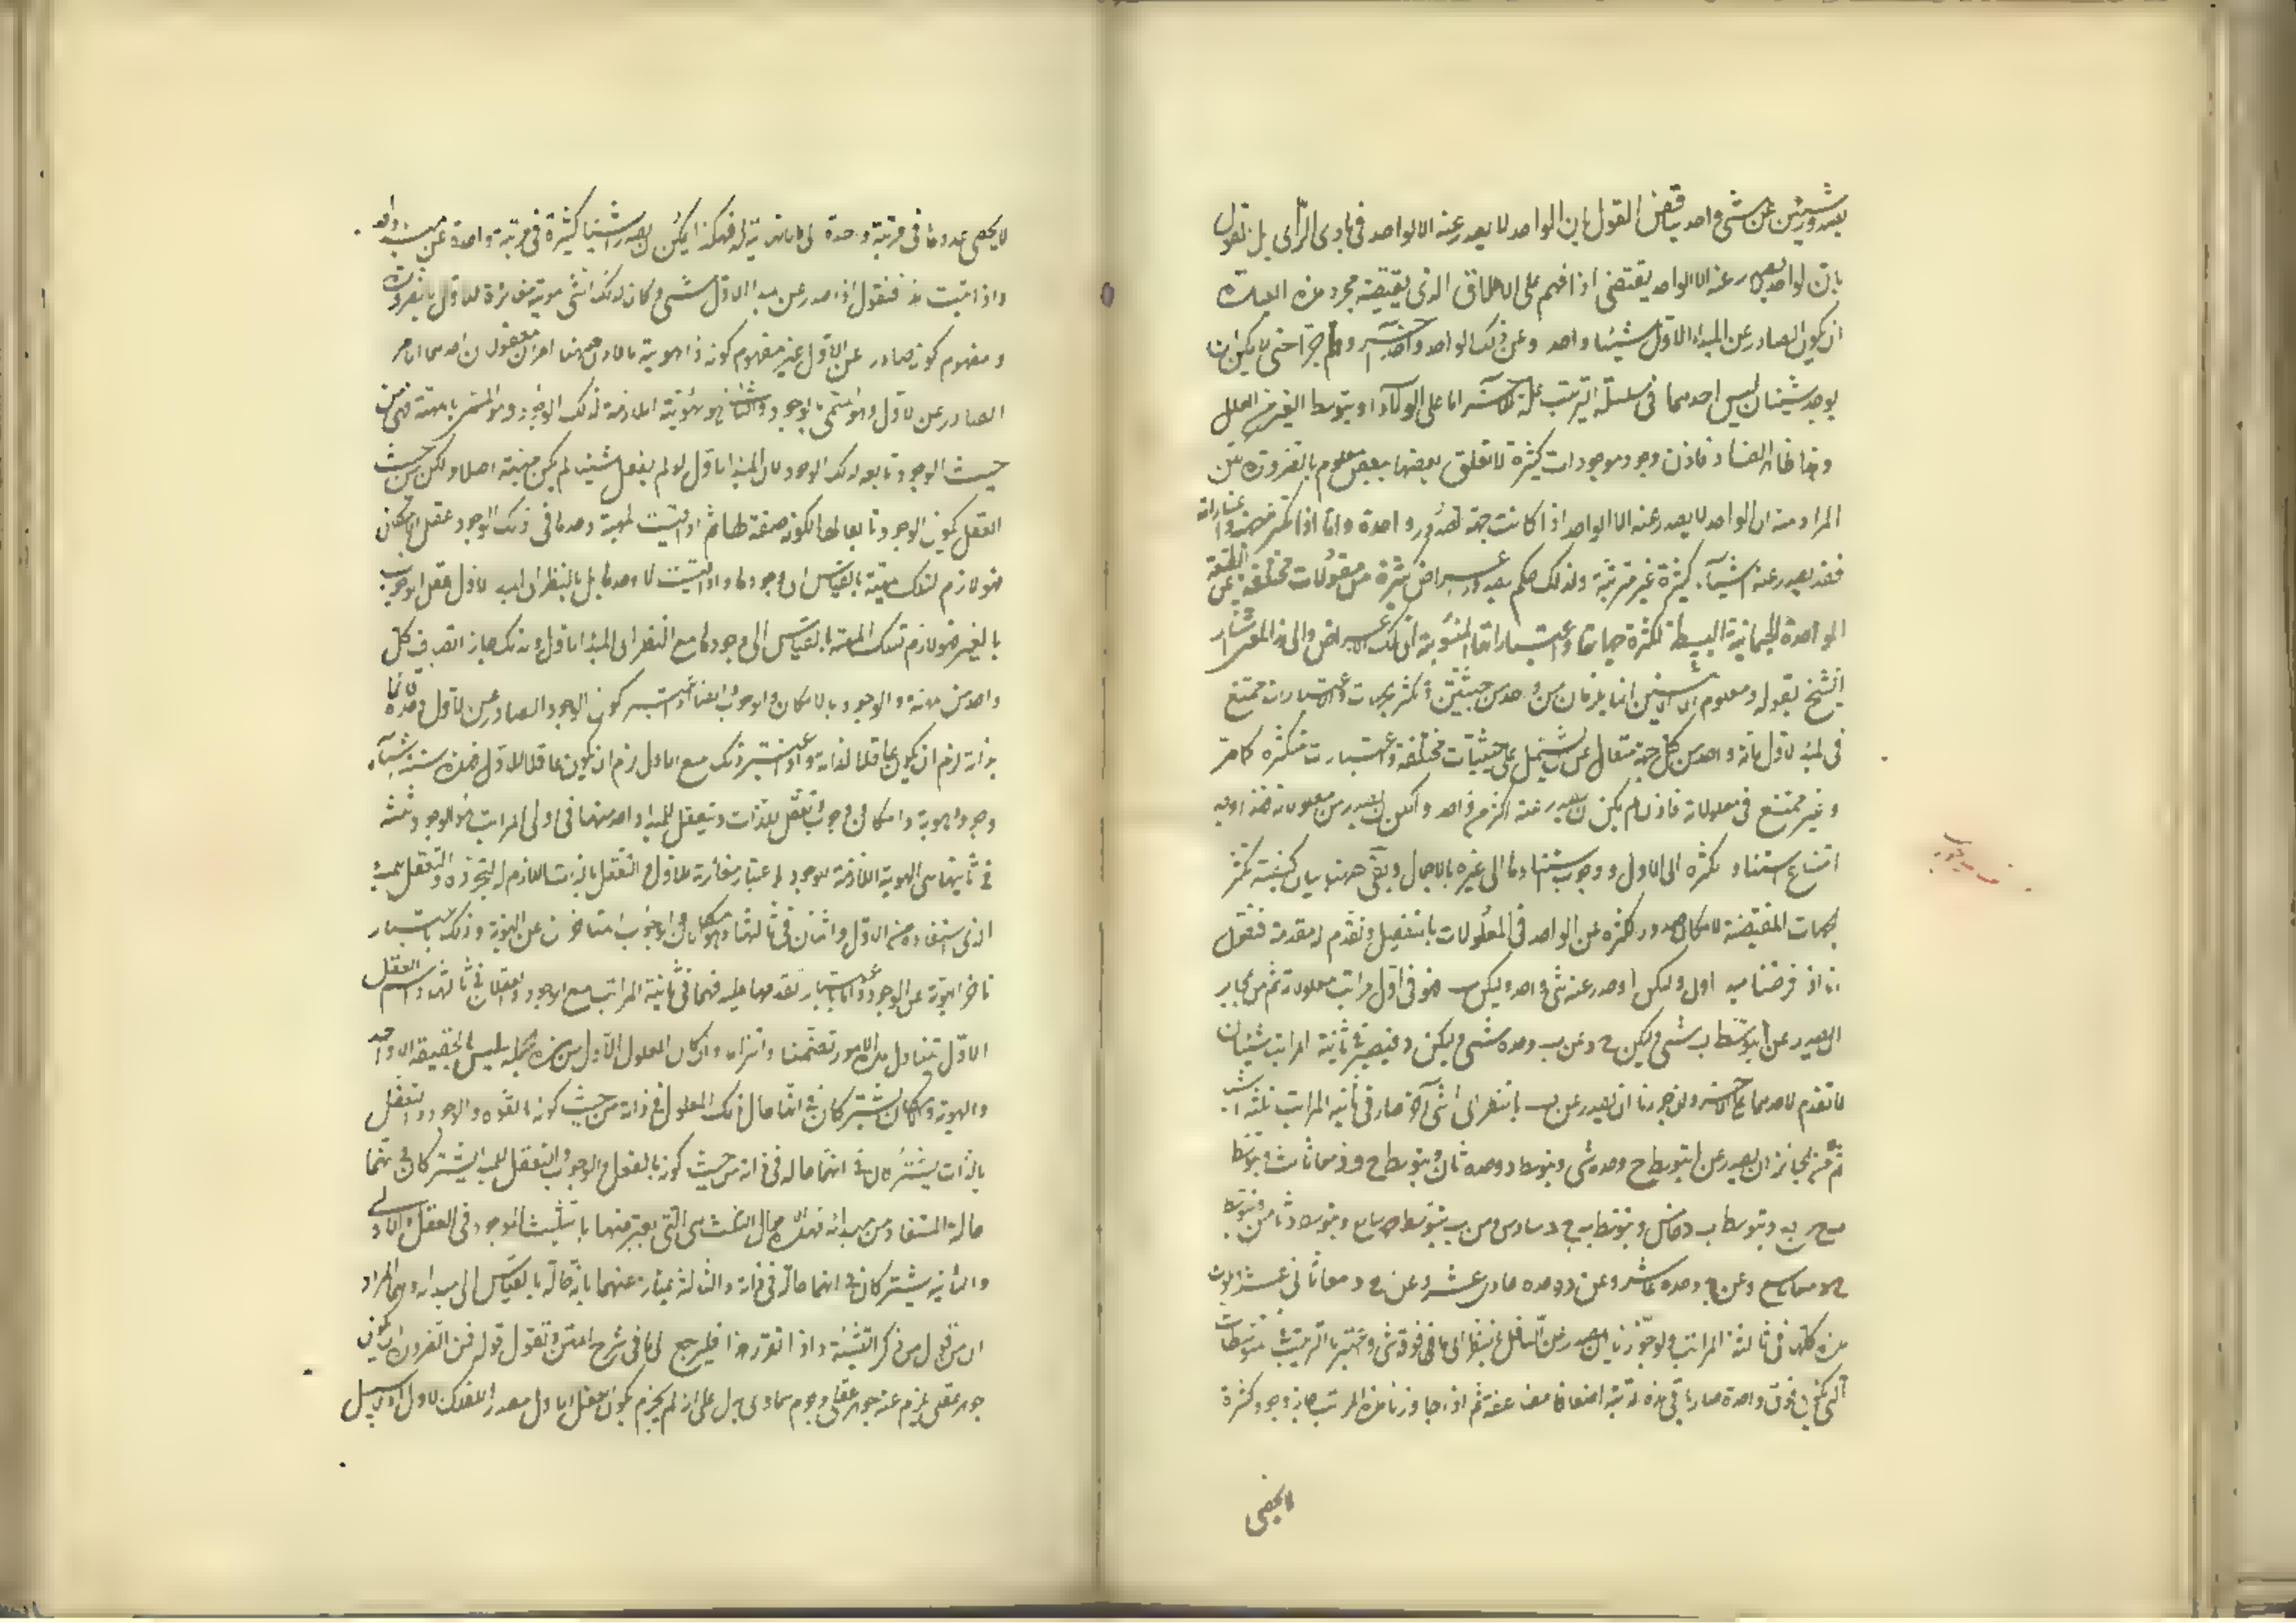 بصدور شيئين عن شىء واحد يناقض القول بان الواحد لا يصدر عنه الا الواحد فى بادى الراى بل نقول
بان الواحد لا يصدر عنه الا الواحد يقتضى اذا فهم على الاطلاق الذى يقتضيه مجرد هذه العبارة
ان يكون الصادر عن المبداء الاول شيئا واحدا وعن ذلك الواحد واحدا آخر وهلم جرا حتى لا يمكن ان
يوجد شيئان ليس احدهما فى سلسلة الترتيب علة للآخر اما على الولاء او بتوسط الغير من العلل
وهذا ظاهر الفساد فاذن وجود موجودات كثيرة لا تعلق بعضها ببعض معلوم بالضرورة بين
المراد منه ان الواحد لا يصدر عنه الا الواحد اذا كانت جهة الصدور واحدة واما اذا تكثر جهته واعتباراته
فقد يصدر عنه اشياء كثيرة غير مترتبة ولذلك حكم بصدور اعراض كثيرة من مقولات مختلفة عن الطبيعة
الواحدة الجسمانية البسيطة لكثرة جهاتها واعتباراتها المنسوبة الى تلك الاعراض والى هذا المعنى اشار
الشيخ بقوله ومعلوم ان الاثنين انما يلزمان من واحد من حيثيتين وتكثر الجهات والاعتبارات ممتنع
فى المبداء الاول لانه واحد من كل جهة متعال عن ان يشتمل على حيثيات مختلفة واعتبارات متكثرة كما مر
وغير ممتنع فى معلولاته فاذن لم يكن ان يصدر عنه اكثر من واحد وامكن ان يصدر من معلولاته فهذا وجه
امتناع استناد الكثرة الى الاول ووجوب استنادها الى غيره بالاجمال وبقى ههنا بيان كيفية تكثر
الجهات المقتضية لامكان صدور الكثرة عن الواحد فى المعلولات بالتفصيل ونقدم له مقدمة فنقول
انا اذا فرضنا مبداء اول وليكن ا وصدر عنه شىء واحد وليكن ب فهو فى اول مراتب معلولاته ثم من الجايز
ان يصدر عن ا بتوسط ب شىء وليكن ج وعن ب وحده شىء وليكن د فيصير فى ثانية المراتب شيئان
لا تقدم لاحدهما على الآخر وان جوزنا ان يصدر عن ب بالنظر الى ا شىء آخر صار فى ثانية المراتب ثلثة اشياء
ثم من الجائز ان يصدر عن ا بتوسط ج وحده شىء وبتوسط د وحده ثان وبتوسط ج ود معا ثالث وبتوسط
ب ج رابع وبتوسط ب د خامس وبتوسط ب ج د سادس وعن ب بتوسط ج سابع وبتوسط د ثامن وبتوسط
ج د معا تاسع وعن ج وحده عاشر وعن د وحده حادى عشر وعن ج د معا ثانى عشر ويكون
هذه كلها فى ثالثة المراتب ولو جوزنا ان يصدر عن السافل بالنظر الى ما فوقه شىء واعتبرنا الترتيب فى المتوسطات
التى تكون فوق واحدة صار ما فى هذه المرتبة اضعافا مضاعفة ثم اذا جاوزنا هذه المراتب جاز وجود كثرة
لا يحصى
لا يحصى عددها فى مرتبة واحدة الى ما لا نهاية له فهكذا يمكن ان يصدر اشياء كثيرة فى مرتبة واحدة عن مبداء واحد
واذا ثبت هذا فنقول اذا صدر عن المبداء الاول شىء كان لذلك الشىء هوية مغايرة للاول بالضرورة
ومفهوم كونه صادرا عن الاول غير مفهوم كونه ذا هوية ما فاذن ههنا امران معقولان احدهما الامر
الصادر عن الاول وهو المسمى بالوجود والثانى هو الهوية اللازمة لذلك الوجود وهو المسمى بالمهية فهى من
حيث الوجود تابعة لذلك الوجود لان المبداء الاول لو لم يفعل شيئا لم يكن مهية اصلا ولكن من حيث
العقل يكون الوجود تابعا لها لكونه صفة لها ثم اذا قيست المهية وحدها الى ذلك الوجود عقل الامكان
فهو لازم لتلك المهية بالقياس الى وجودها واذا قيست لا وحدها بل بالنظر الى المبداء الاول عقل الوجوب
بالغير فهو لازم لتلك المهية بالقياس الى وجودها مع النظر الى المبداء الاول ولذلك جاز اتصاف كل
واحد من المهية والوجود بالامكان والوجوب ايضا اذا اعتبر كون الوجود الصادر عن الاول وحده قائما
بذاته لزم ان يكون عاقلا لذاته واذا اعتبر ذلك مع الاول لزم ان يكون عاقلا للاول فهذه ستة اشياء
وجود وهوية وامكان ووجوب وتعقل للذات وتعقل للمبداء واحد منها فى اولى المراتب هو الوجود وثلثة
فى ثانيتها هى الهوية اللازمة للوجود باعتبار مغايرته للاول والتعقل بالذات اللازم له لتجرده والتعقل للمبداء
الذى استفاده من الاول واثنان فى ثالثتها وهما الامكان والوجوب المتاخران عن الهوية وذلك باعتبار
تاخر الهوية عن الوجود واما باعتبار تقدمها عليه فهما فى ثانية المراتب مع الوجود والتعقلان فى ثالثتها واسم العقل
الاول يتناول هذه الامور تضمنا والتزاما وان كان المعلول الاول من هذه الجملة ليس فى الحقيقة الا واحد
والهوية والامكان يشتركان فى انهما حال ذلك المعلول فى ذاته من حيث كونه بالقوة والوجود والتعقل
بالذات يشتركان فى انهما حاله فى ذاته من حيث كونه بالفعل والوجوب والتعقل للمبداء يشتركان فى انهما
حاله المستفاد من مبدائه فهذه الاحوال الثلث هى التى يعبر عنها بالتثليث الموجود فى العقل والاولى
والثانية يشتركان فى انهما حاله فى ذاته والثالثة يمتاز عنهما بانه حاله بالقياس الى مبدائه وهما المراد
ان من قول من ذكر التثنية واذا تقرر هذا فليرجع الى ما فى شرح المتن ونقول قوله فمن الضرورة ان يكون
جوهر عقلى يلزم عنه جوهر عقلى وجرم سماوى يدل على انه لم يجزم بكون العقل الاول مصدرا للفلك الاول اذ لا سبيل